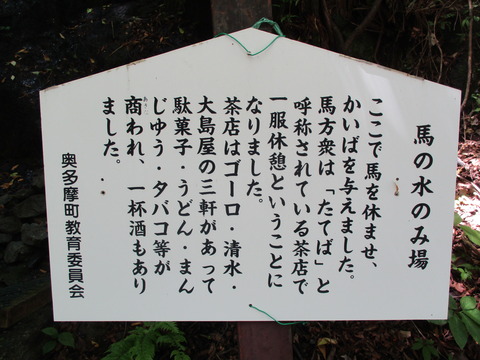 馬の水のみ場
ここで馬を休ませ、
かいばを与えました。
馬方衆は「たてば」と
呼称されている茶店で
一服休憩ということに
なりました。
茶店はゴーロ・清水・
大島屋の三軒があって
駄菓子・うどん・まん
じゅう・タバコ等が
商われ、一杯酒もあり
ました。
奥多摩町教育委員会